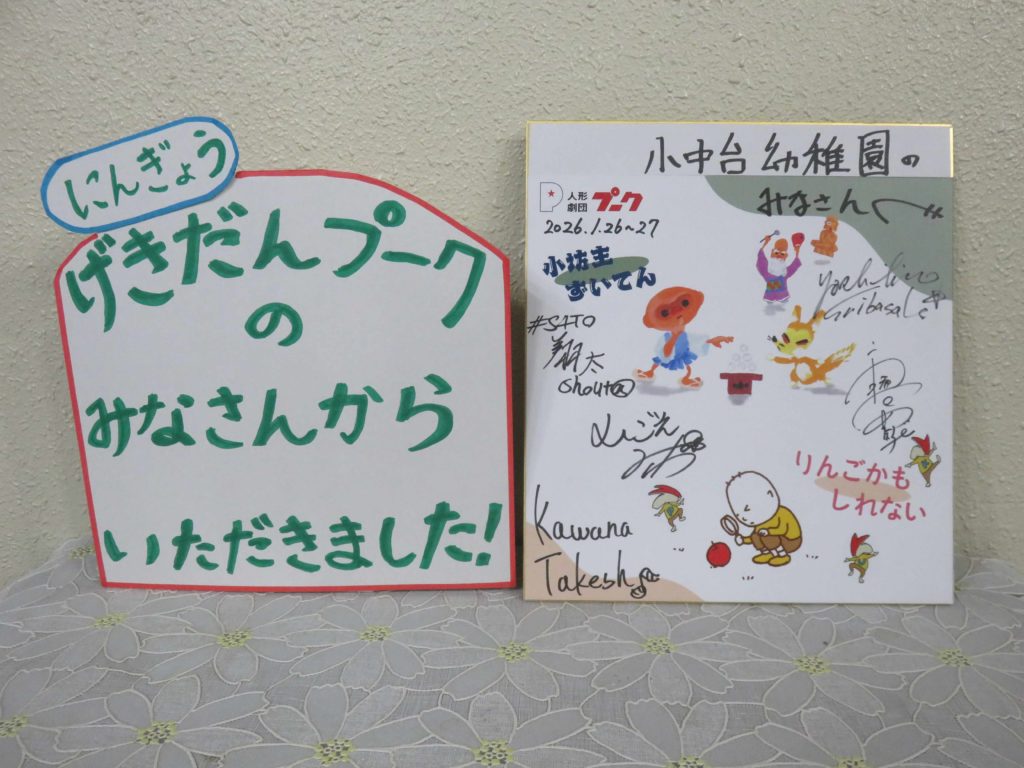 にんぎょう
げきだんプーク
の
みなさんから
いただきました!
小中台幼稚園の
みなさんへ
人形
劇団
プーク
2026.1.26~27
小坊主
ずいてん
#SATO
翔太
Shouta
りんごかも
しれない
Kawana
Takeshi